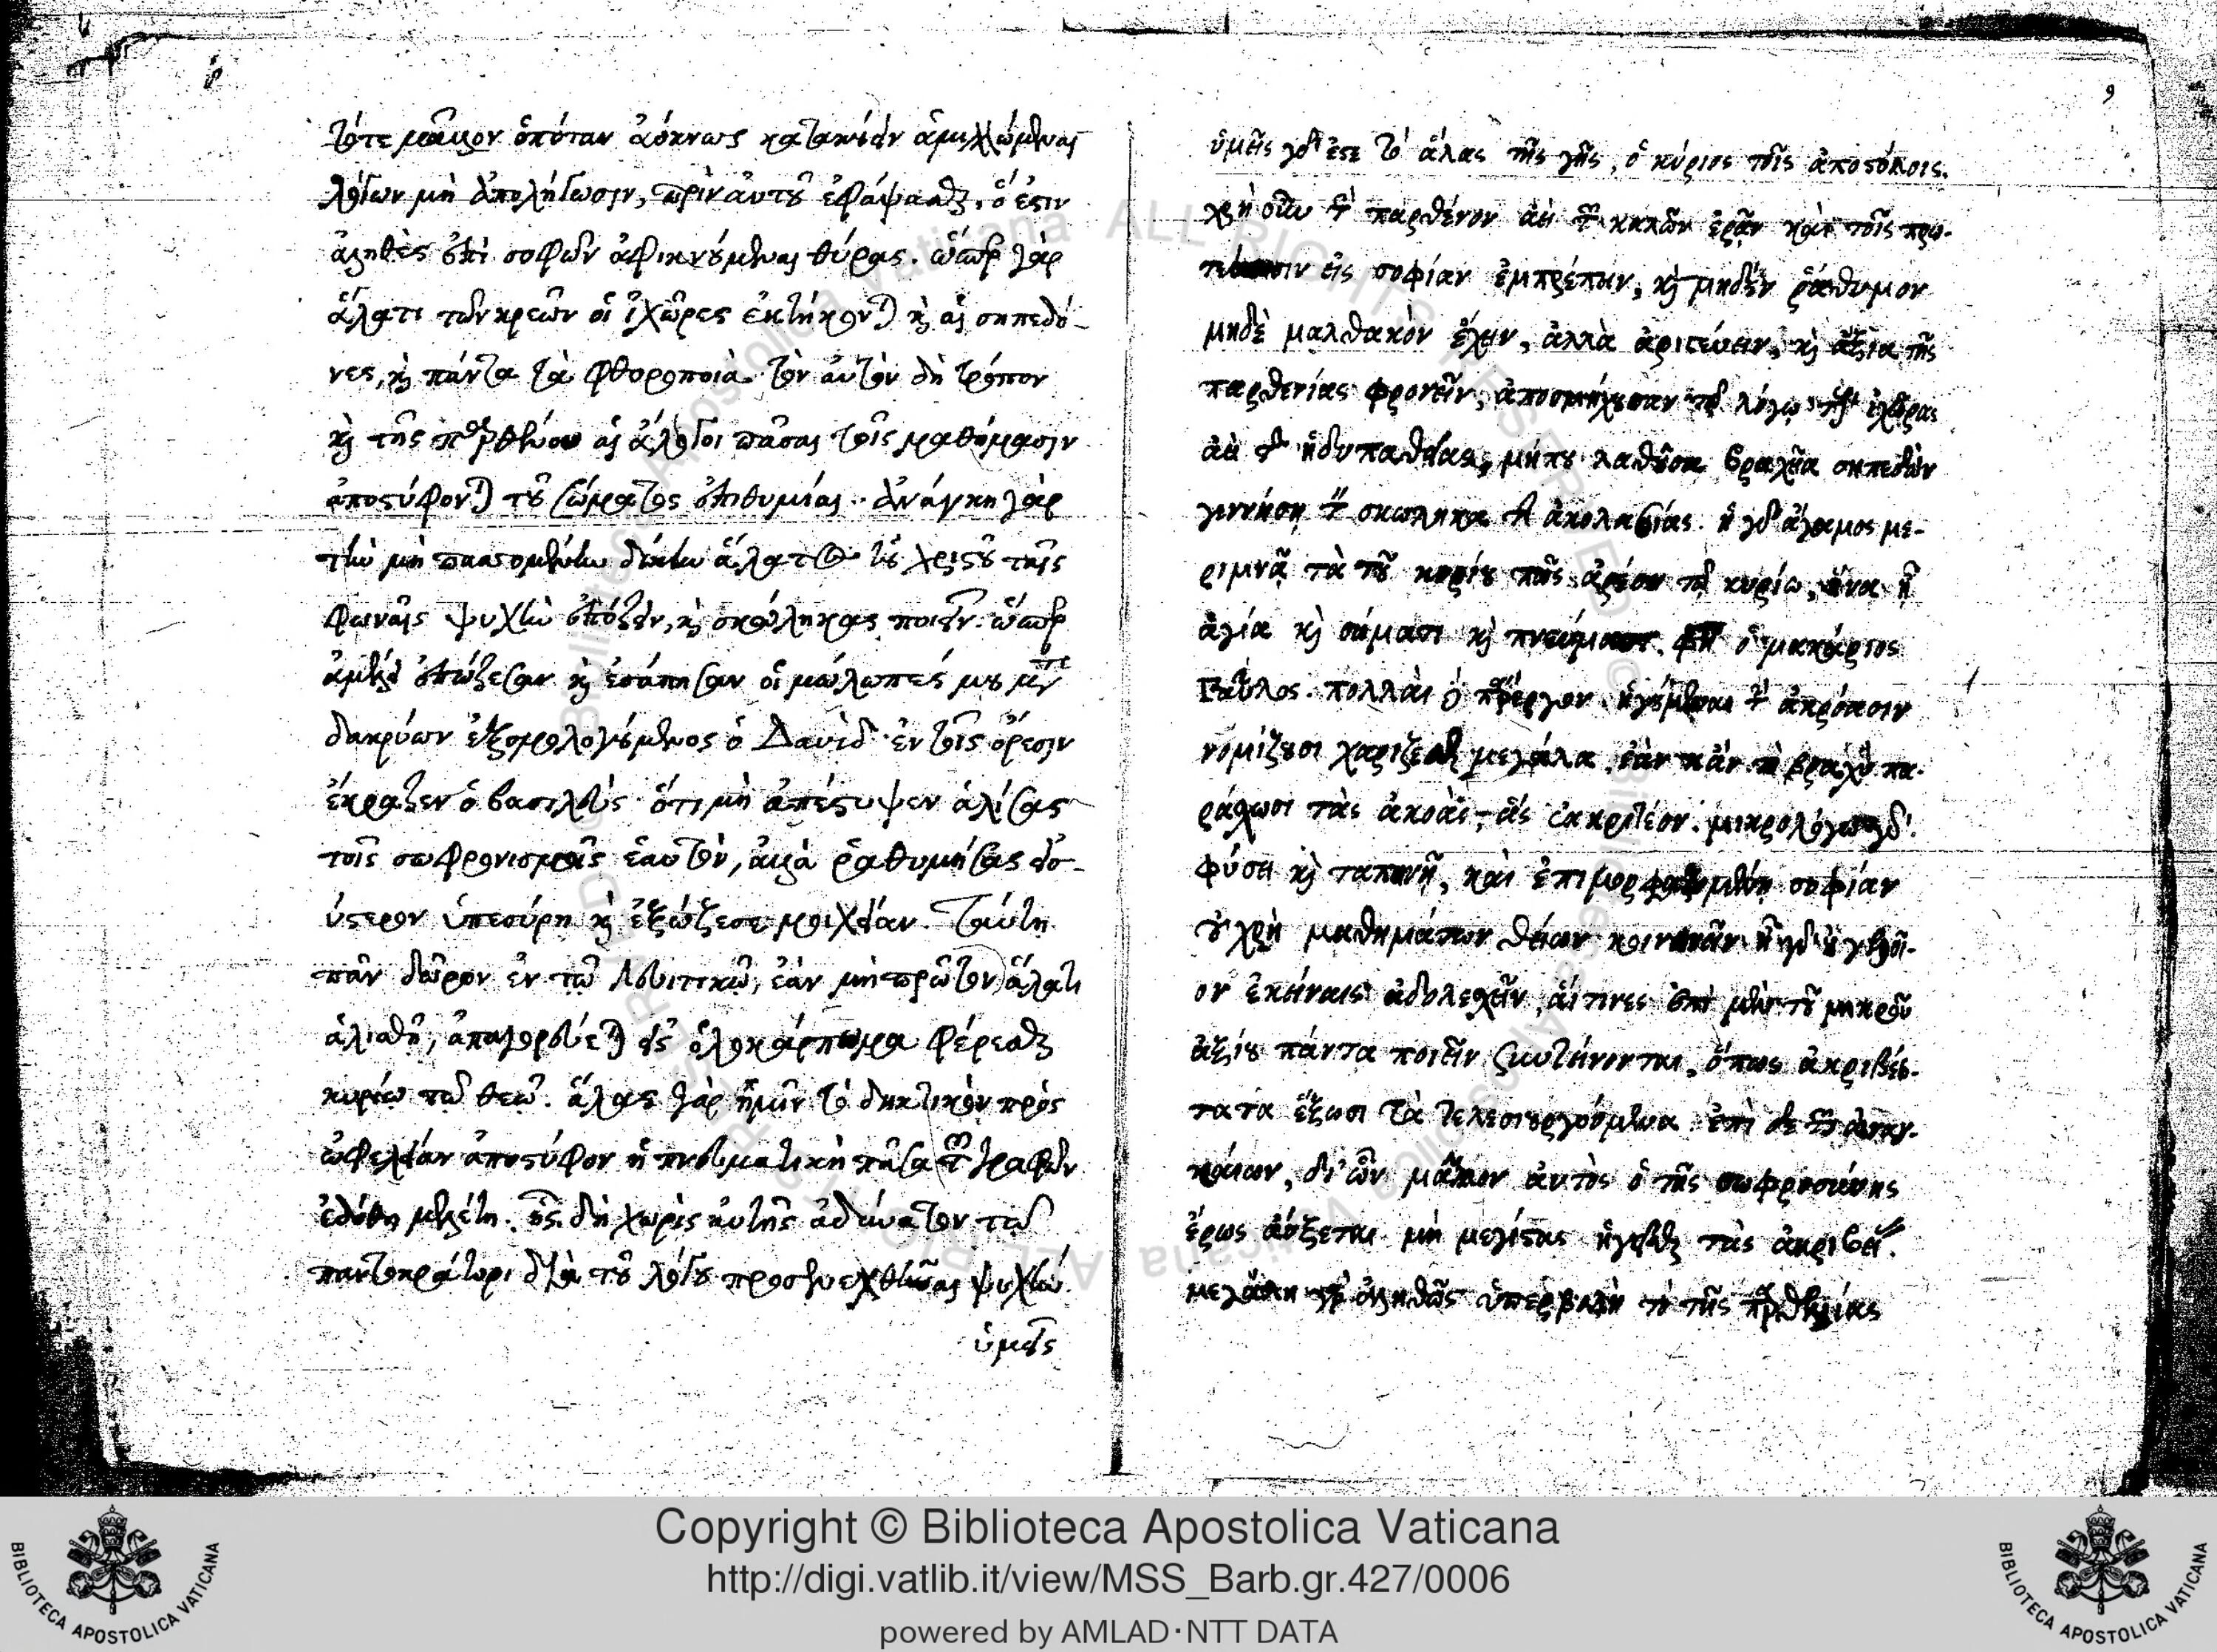 τότε μᾶλλον ὁπόταν ἀόκνως κατακούειν ἁμιλλώμεναι
λόγων μὴ ἀπολήγωσιν, πρὶν αὐτοῦ ἐφάψασθαι, ὅ ἐστιν
ἀληθὲς ἐπὶ σοφῶν ἀφικνούμεναι θύρας. ὥσπερ γὰρ
ἅλατι τῶν κρεῶν οἱ ἰχῶρες ἐκτήκονται καὶ αἱ σηπεδό-
νες, καὶ πάντα τὰ φθοροποιὰ. τὸν αὐτὸν δὴ τρόπον
καὶ τῆς παρθένου αἱ ἄλογοι πᾶσαι τοῖς μαθήμασιν
ἀποστύφονται τοῦ σώματος ἐπιθυμίαι. ἀνάγκη γὰρ
τὴν μὴ παττομένην δίκην ἅλατος τοῦ χριστοῦ ταῖς
φωναῖς ψυχὴν ἐπόζειν, καὶ σκώληκας ποιεῖν. ὥσπερ
ἀμέλει ἐπώζεσαν καὶ ἐσάπησαν οἱ μώλωπές μου μετὰ
δακρύων ἐξομολογούμενος ὁ Δαυὶδ ἐν τοῖς ὄρεσιν
ἐκραξεν ὁ βασιλεὺς ὅτι μὴ ἀπέστυψεν ἁλίσας
τοῖς σωφρονισμοῖς ἑαυτὸν, ἀλλὰ ῥαθυμήσας εἰσ-
ύστερον ὑπεσύρη καὶ ἐξώζεσε μοιχείαν. Ταύτη
πᾶν δῶρον ἐν τῷ λευιτικῷ, ἐὰν μὴ πρῶτον ἅλατι
ἁλισθῇ, ἀπαγορεύεται εἰς ὁλοκάρπωμα φέρεσθαι
κυρίῳ τῷ θεῷ. ἅλας γὰρ ἡμῖν τὸ δηκτικὸν πρὸς
ὠφέλειαν ἀποστύφον ἡ πνευματικὴ πᾶσα τῶν γραφῶν
ἐδόθη μελέτη. ἧς δὴ χωρὶς αὐτῆς ἀδύνατον τῷ
παντοκράτορι διὰ τοῦ λόγου προσενεχθῆναι ψυχὴν.
ὑμεῖς
9
ὑμεῖς γάρ ἐστε τὸ ἅλας τῆς γῆς, ὁ κύριος τοῖς ἀποστόλοις.
χρὴ οὖν τὴν παρθένον ἀεὶ τῶν καλῶν ἐρᾶν καὶ τοῖς πρω-
τεύουσιν εἰς σοφίαν ἐμπρέπειν, καὶ μηδὲν ῥάθυμον
μηδὲ μαλθακὸν ἔχειν, ἀλλὰ ἀριστεύειν, καὶ ἄξια τῆς
παρθενίας φρονεῖν, ἀποσμήχουσαν τῷ λόγῳ τοὺς ἰχῶρας
ἀεὶ τῆς ἡδυπαθείας, μήπου λαθοῦσα βραχεῖα σηπεδὼν
γεννήσῃ τὸν σκώληκα τῆς ἀκολασίας. ἡ γὰρ ἄγαμος με-
ριμνᾷ τὰ τοῦ κυρίου πῶς ἀρέσει τῷ κυρίῳ, ἵνα ᾖ
ἁγία καὶ σώματι καὶ πνεύματι. φησὶ ὁ μακάριος
Παῦλος. πολλαὶ δὲ πάρεργον ἡγούμεναι τὴν ἀκρόασιν
νομίζουσι χαρίζεσθαι μεγάλα, ἐὰν κἂν βραχὺ πα-
ράσχωσι τὰς ἀκοὰς, ἃς ἐκκριτέον. μικρολόγῳ γὰρ
φύσει καὶ ταπεινῇ, καὶ ἐπιμορφαζομένῃ σοφίαν
οὐ χρὴ μαθημάτων θείων κοινωνεῖν ἢ γὰρ οὐ γελοῖ-
ον ἐκείναις ἀδολεσχεῖν, αἵτινες ἐπὶ μὲν τοῦ μικροῦ
ἀξίου πάντα ποιεῖν συντείνονται, ὅπως ἀκριβέσ-
τατα ἕξωσι τὰ τελεσιουργούμενα ἐπὶ δὲ τῶν ἀναγ-
καίων, δι' ὧν μᾶλλον αὐτὸς ὁ τῆς σωφροσύνης
ἔρως αὔξεται μὴ μεγίστας ἡγεῖσθαι τὰς ἀκριβείας.
μεγάλη γὰρ ἀληθῶς ὑπερβολὴ τὸ τῆς παρθενίας
Copyright © Biblioteca Apostolica Vaticana
http://digi.vatlib.it/view/MSS_Barb.gr.427/0006
powered by AMLAD·NTT DATA
BIBLIOTECA APOSTOLICA VATICANA
BIBLIOTECA APOSTOLICA VATICANA